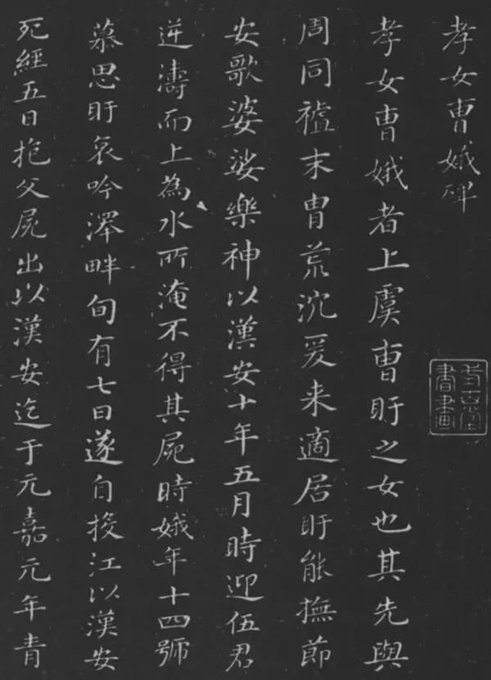 孝女曹娥碑
孝女曹娥者上虞曹盱之女也其先與
周同祖末胄荒沈爰来適居盱能撫節
安歌婆娑樂神以漢安十年五月時迎伍君
逆濤而上為水所淹不得其屍時娥年十四號
慕思盱哀吟澤畔旬有七日遂自投江以漢安
死經五日抱父屍出以漢安迄于元嘉元年青
書畫